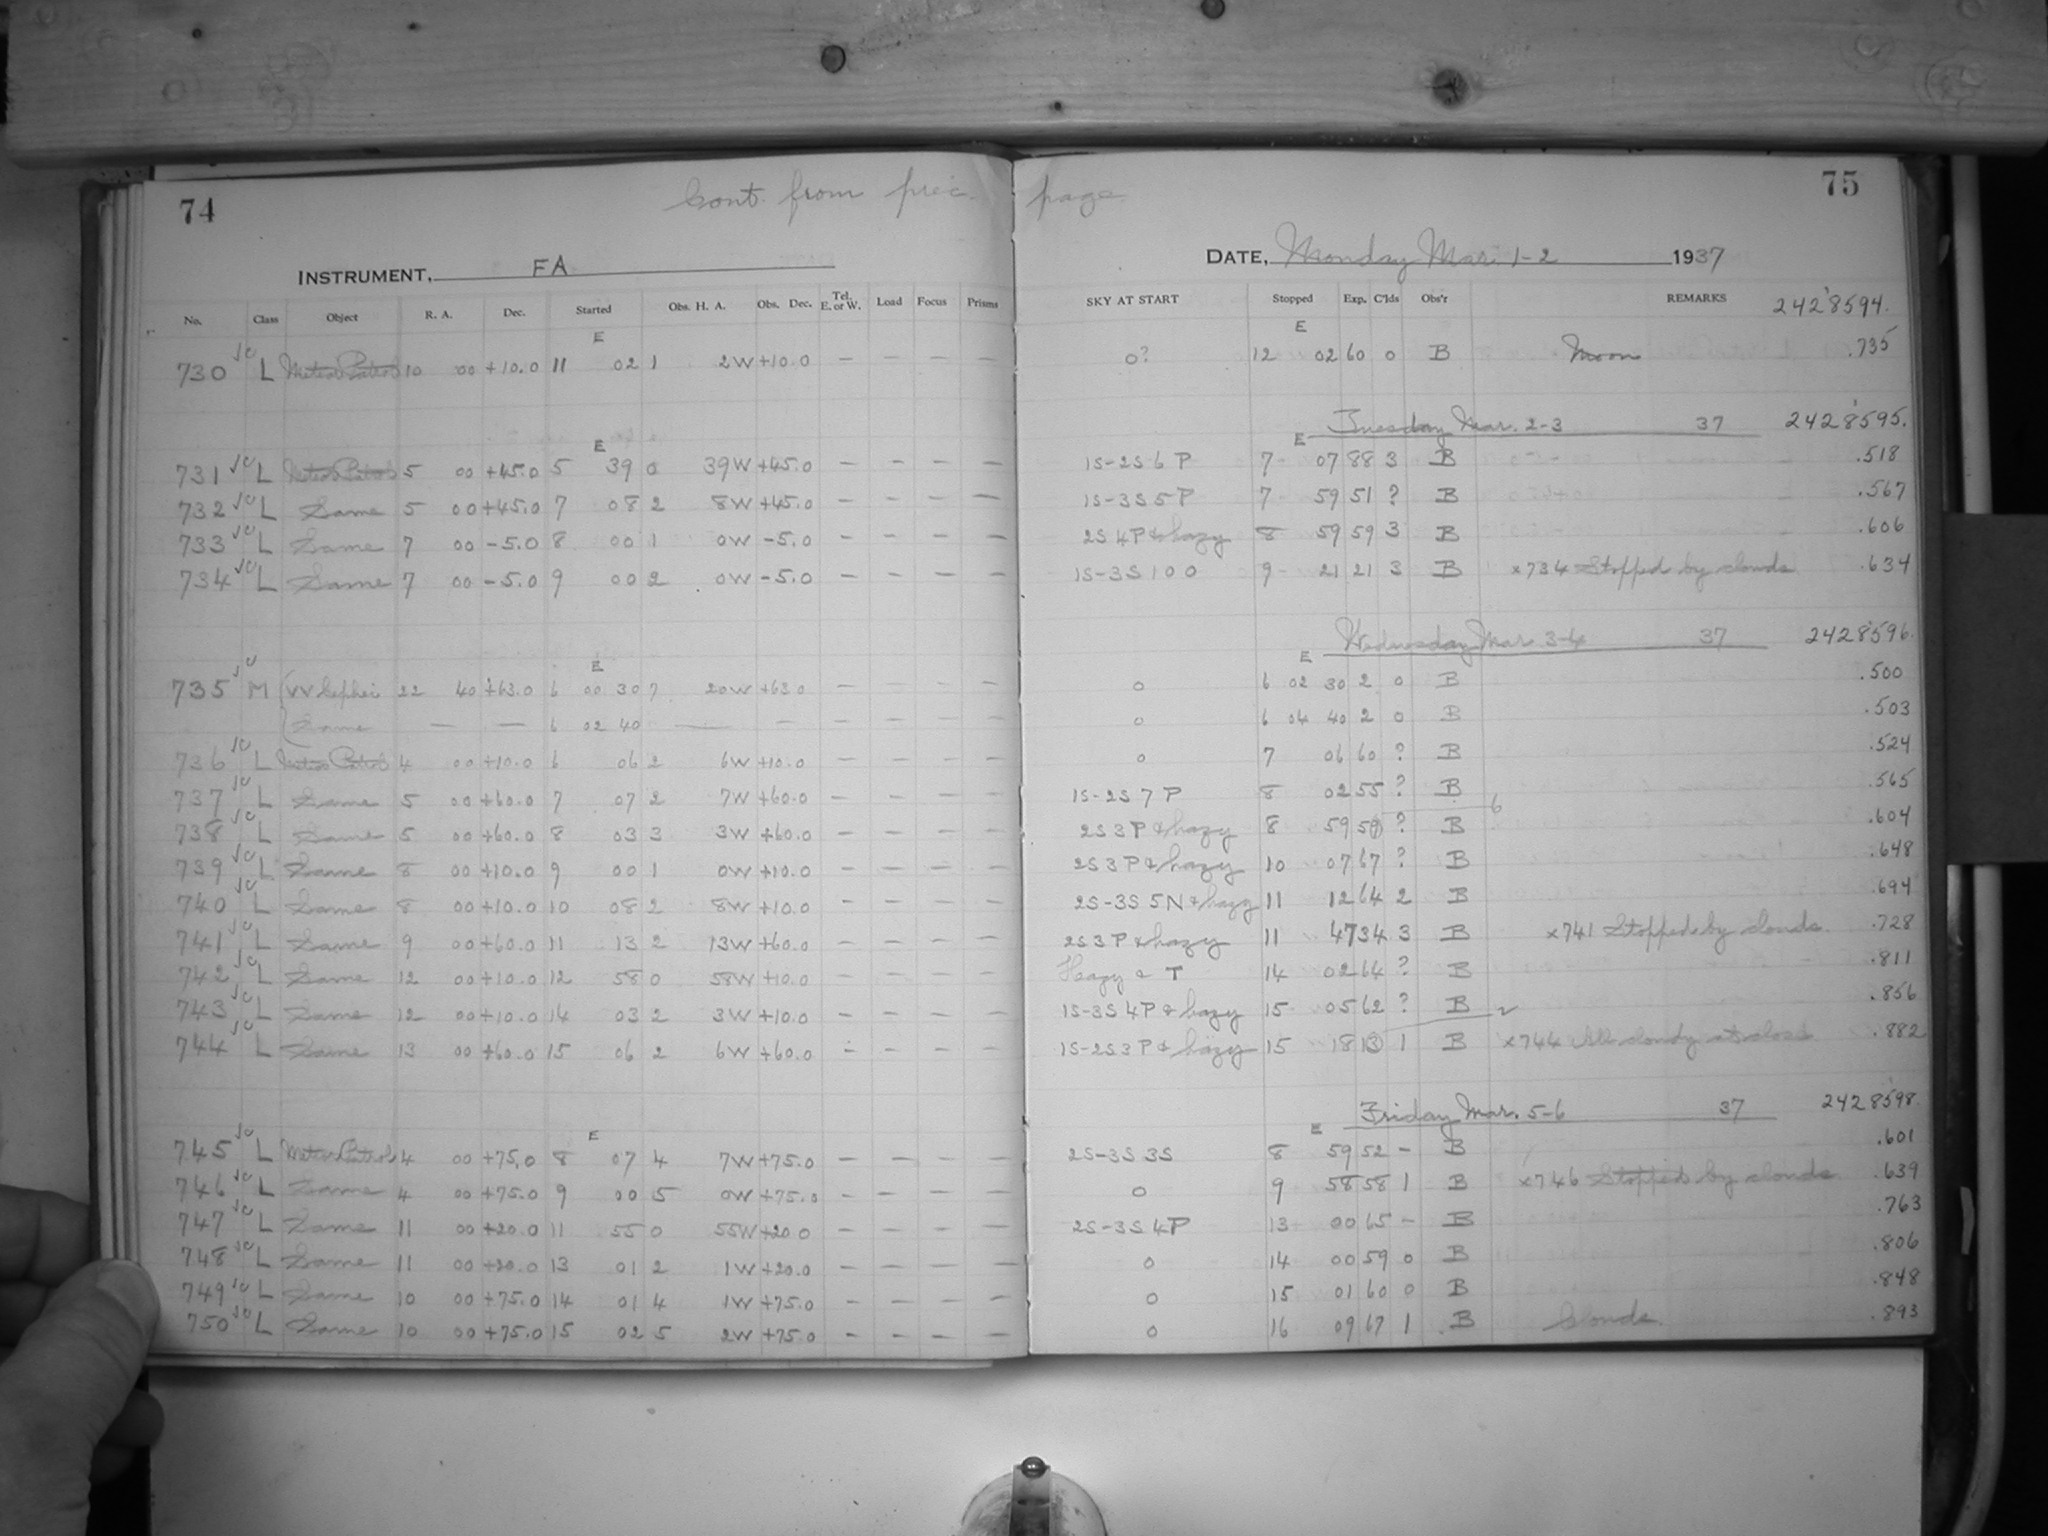 74 Cont. from prec. page 75
INSTRUMENT, FA DATE, Monday Mar. 1-2 1937
No. Class Object R. A. Dec. Started Obs. H. A. Obs. Dec. Tel. E. or W. Load Focus Prisms SKY AT START Stopped Exp. C'lds Obs'r REMARKS 2428594.
E E
730 L Meteor Patrol 10 00 +10.0 11 02 1 2W +10.0 — — — — 0? 12 02 60 0 B Moon .735
Tuesday Mar. 2-3 37 2428595.
E E
731 L Meteor Patrol 5 00 +45.0 5 39 0 39W +45.0 — — — — 1S-2S 6 P 7 07 88 3 B .518
732 L Same 5 00 +45.0 7 08 2 8W +45.0 — — — — 1S-3S 5 P 7 59 51 ? B .567
733 L Same 7 00 -5.0 8 00 1 0W -5.0 — — — — 2S 4 P & hazy 8 59 59 3 B .606
734 L Same 7 00 -5.0 9 00 2 0W -5.0 — — — — 1S-3S 10 0 9 21 21 3 B x734 Stopped by clouds .634
Wednesday Mar. 3-4 37 2428596.
E E
735 M (VV Cephei 22 40 +63.0 6 00 30 7 20W +63.0 — — — — 0 6 02 30 2 0 B .500
(Same — — 6 02 40 — — — — — — 0 6 04 40 2 0 B .503
736 L Meteor Patrol 4 00 +10.0 6 06 2 6W +10.0 — — — — 0 7 06 60 ? B .524
737 L Same 5 00 +60.0 7 07 2 7W +60.0 — — — — 1S-2S 7 P 8 02 55 ? B .565
738 L Same 5 00 +60.0 8 03 3 3W +60.0 — — — — 2S 3 P & hazy 8 59 59 ? B 6 .604
739 L Same 8 00 +10.0 9 00 1 0W +10.0 — — — — 2S 3 P & hazy 10 07 67 ? B .648
740 L Same 8 00 +10.0 10 08 2 8W +10.0 — — — — 2S-3S 5 N & hazy 11 12 64 2 B .694
741 L Same 9 00 +60.0 11 13 2 13W +60.0 — — — — 2S 3 P & hazy 11 47 34 3 B x741 Stopped by clouds. .728
742 L Same 12 00 +10.0 12 58 0 58W +10.0 — — — — Hazy & T 14 02 64 ? B .811
743 L Same 12 00 +10.0 14 03 2 3W +10.0 — — — — 1S-3S 4 P & hazy 15 05 62 ? B 2 .856
744 L Same 13 00 +60.0 15 06 2 6W +60.0 — — — — 1S-2S 3 P & hazy 15 18 13 1 B x744 All cloudy at close .882
Friday Mar. 5-6 37 2428598.
E E
745 L Meteor Patrol 4 00 +75.0 8 07 4 7W +75.0 — — — — 2S-3S 3S 8 59 52 — B .601
746 L Same 4 00 +75.0 9 00 5 0W +75.0 — — — — 0 9 58 58 1 B x746 Stopped by clouds. .639
747 L Same 11 00 +20.0 11 55 0 55W +20.0 — — — — 2S-3S 4 P 13 00 65 — B .763
748 L Same 11 00 +20.0 13 01 2 1W +20.0 — — — — 0 14 00 59 0 B .806
749 L Same 10 00 +75.0 14 01 4 1W +75.0 — — — — 0 15 01 60 0 B .848
750 L Same 10 00 +75.0 15 02 5 2W +75.0 — — — — 0 16 09 67 1 B Clouds. .893